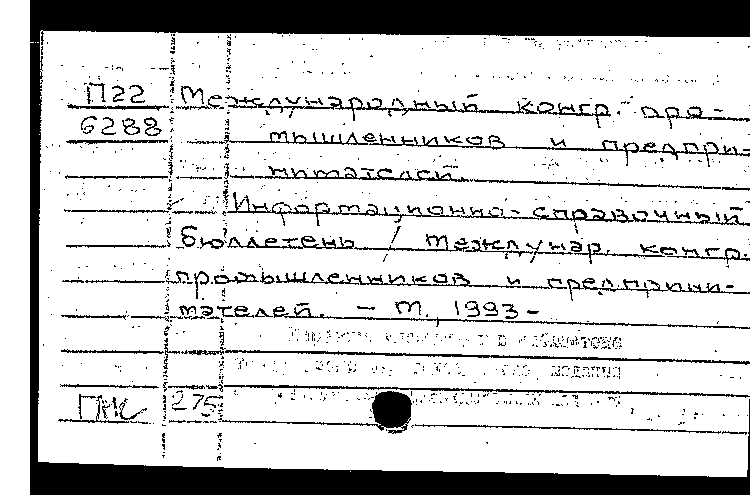 П22 Международный конгр. про-
6288 мышленников и предпри-
нимателей.
Информационно-справочный
бюллетень / Междунар. конгр.
промышленников и предприни-
мателей. — М., 1993 -
ГПК 275